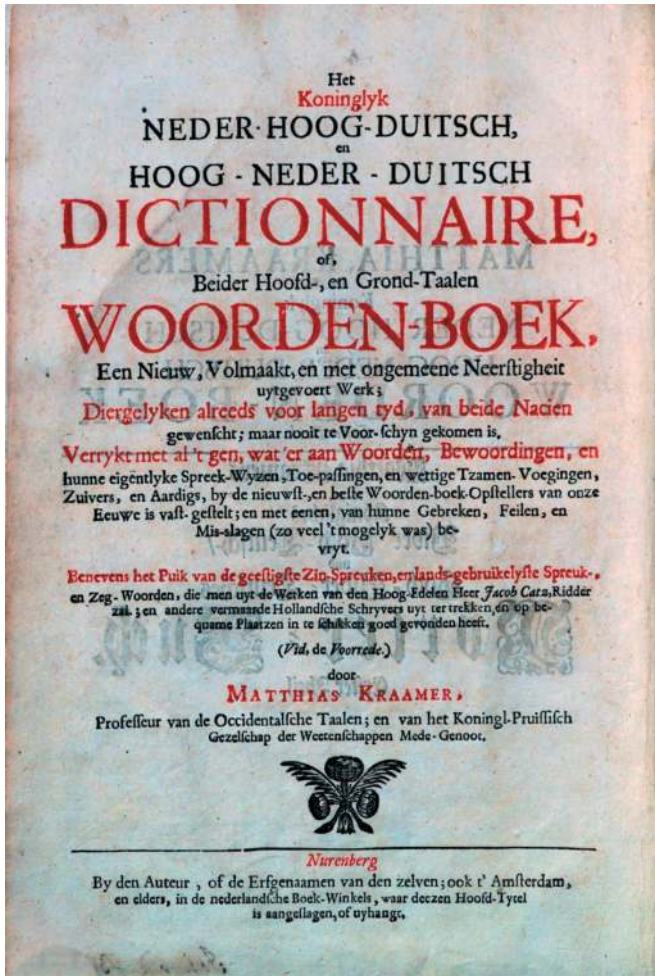 Het
Koninglyk
NEDER-HOOG-DUITSCH,
en
HOOG - NEDER - DUITSCH
DICTIONNAIRE,
of,
Beider Hoofd-, en Grond-Taalen
WOORDEN-BOEK,
Een Nieuw, Volmaakt, en met ongemeene Neerſtigheit
uytgevoert Werk;
Diergelyken alreeds voor langen tyd, van beide Nacien
gewenſcht; maar nooit te Voor-ſchyn gekomen is.
Verrykt met al 't gen, wat 'er aan Woorden, Bewoordingen, en
hunne eigentlyke Spreek-Wyzen, Toe-paſſingen, en wettige Tzamen-Voegingen,
Zuivers, en Aardigs, by de nieuwſt-, en beſte Woorden-boek-Opſtellers van onze
Eeuwe is vaſt-geſtelt; en met eenen, van hunne Gebreken, Feilen, en
Mis-slagen (zo veel 't mogelyk was) be-
vryt.
Benevens het Puik van de geeſtigſte Zin-Spreuken, en lands-gebruikelyſte Spreuk-,
en Zeg-Woorden, die men uyt de Werken van den Hoog-Edelen Heer Jacob Catz, Ridder
zal.; en andere vermaarde Hollandſche Schryvers uyt ter trekken, en op be-
quame Plaatzen in te ſchikken goed gevonden heeft.
(Vid. de Voorrede.)
door
MATTHIAS KRAAMER,
Profeſſeur van de Occidentalſche Taalen; en van het Koningl-Pruiſſiſch
Gezelſchap der Weetenſchappen Mede-Genoot.
Nurenberg
By den Auteur, of de Erfgenaamen van den zelven; ook t' Amſterdam,
en elders, in de nederlandſche Boek-Winkels, waar deezen Hoofd-Tytel
is aangeſlagen, of uyhangt.